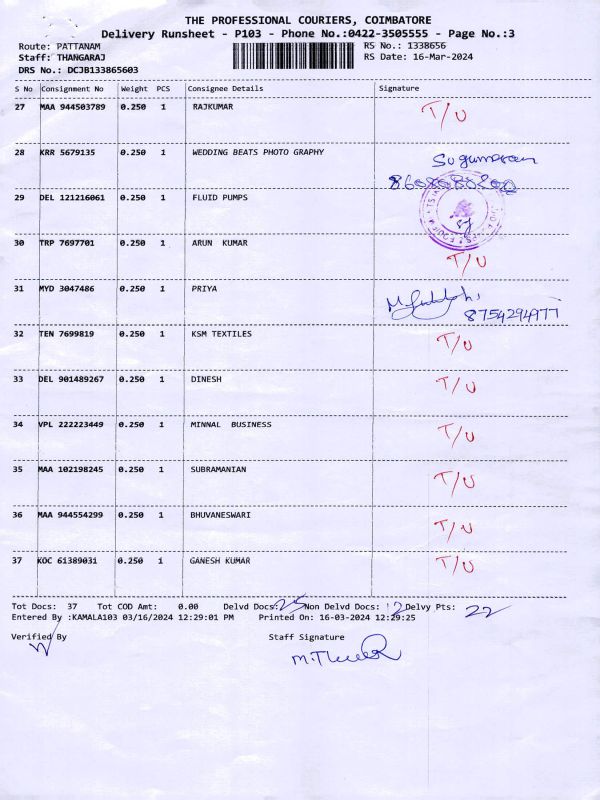 THE PROFESSIONAL COURIERS, COIMBATORE
Delivery Runsheet - P103 - Phone No.:0422-3505555 - Page No.:3
Route: PATTANAM RS No.: 1338656
Staff: THANGARAJ RS Date: 16-Mar-2024
DRS No.: DCJB133865603
S No Consignment No Weight PCS Consignee Details Signature
27 MAA 944503789 0.250 1 RAJKUMAR T/U
28 KRR 5679135 0.250 1 WEDDING BEATS PHOTO GRAPHY Sugumaran
29 DEL 121216061 0.250 1 FLUID PUMPS
30 TRP 7697701 0.250 1 ARUN KUMAR T/U
31 MYD 3047486 0.250 1 PRIYA
8754294977
32 TEN 7699819 0.250 1 KSM TEXTILES T/U
33 DEL 901489267 0.250 1 DINESH T/U
34 VPL 222223449 0.250 1 MINNAL BUSINESS T/U
35 MAA 102198245 0.250 1 SUBRAMANIAN T/U
36 MAA 944554299 0.250 1 BHUVANESWARI T/U
37 KOC 61389031 0.250 1 GANESH KUMAR T/U
Tot Docs: 37 Tot COD Amt: 0.00 Delvd Docs: 25 Non Delvd Docs: 12 Delvy Pts: 22
Entered By :KAMALA103 03/16/2024 12:29:01 PM Printed On: 16-03-2024 12:29:25
Verified By Staff Signature